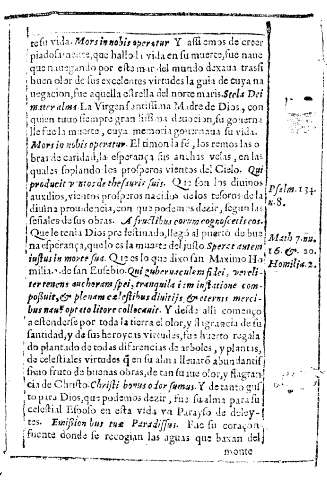 te su vida. Mors in nobis operatur Y assi emos de creer
piadosamente, que hallo la vida en su muerte, fue naue
que nauegando por este mar del mundo dexaua trassi
buen olor de sus excelentes virtudes la guia de cuya na
uegacion, fue aquella estrella del norte maris. Stela Dei
mater alma La Virgen santissima Madre de Dios, con
quien tuuo siempre grandissima deuocion, su gouerna
lle fue la muerte, cuya memoria gouernaua su vida.
Mors in nobis operatur. El timon la fè, los remos las o
bras de caridad, la esperança sus anchas velas, en las
quales soplando los prosperos vientos del Cielo. Qui
producit ventos de thesauris suis. Que son los diuinos
auxilios, vientos prosperos nacidos de los tesoros de la
diuina prouidencia, con que podemos dezir, segun las
señales de sus obras. A fructibus eorum cognoscetis eos.
Que le tenia Dios predestinado, llegò al puerto de bue
na esperança, que lo es la muerte del justo Sperat autem
iustus in morte sua. Que es lo que dixo san Maximo Ho
milia 2. de san Eusebio. Qui gubernaculum fidei,
tertenens ancheram spei, tranquila iam instatione com
posuit, & plenam cælestibus diuitijs & æternis merci
bus nauẽ optato litore collocauit. Y desde alli començo
a estenderse por toda la tierra el olor, y flagrancia de su
santidad, y de sus heroycas virtudes, fue huerto regala
do plantado de todas diferencias de arboles, y plantas,
de celestiales virtudes q̃ en su alma lleuarõ abundantis
simo fruto de buenas obras, de tan suaue olor, y flagran
cia de Christo. Christi bonus odor sumus. Y de tanto gus
to para Dios, que podemos dezir, fue su alma para su
celestial Esposo en esta vida vn Parayso de deley-
tes. Emissiones tuæ Paradissus. Fue su coraçon
fuente donde se recogian las aguas que baxan del
monte
Psalm. 134.
n. 8.
Math 7. nu.
16. & 20.
Homilia. 2.